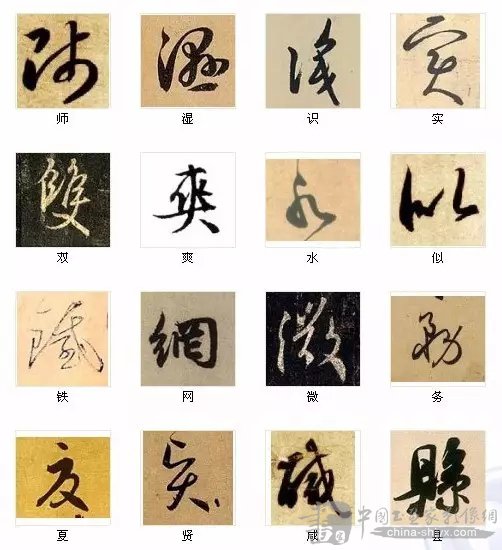 师 湿 识 实
双 爽 水 似
铁 网 微 务
夏 贤 咸 县
china-shjx.com